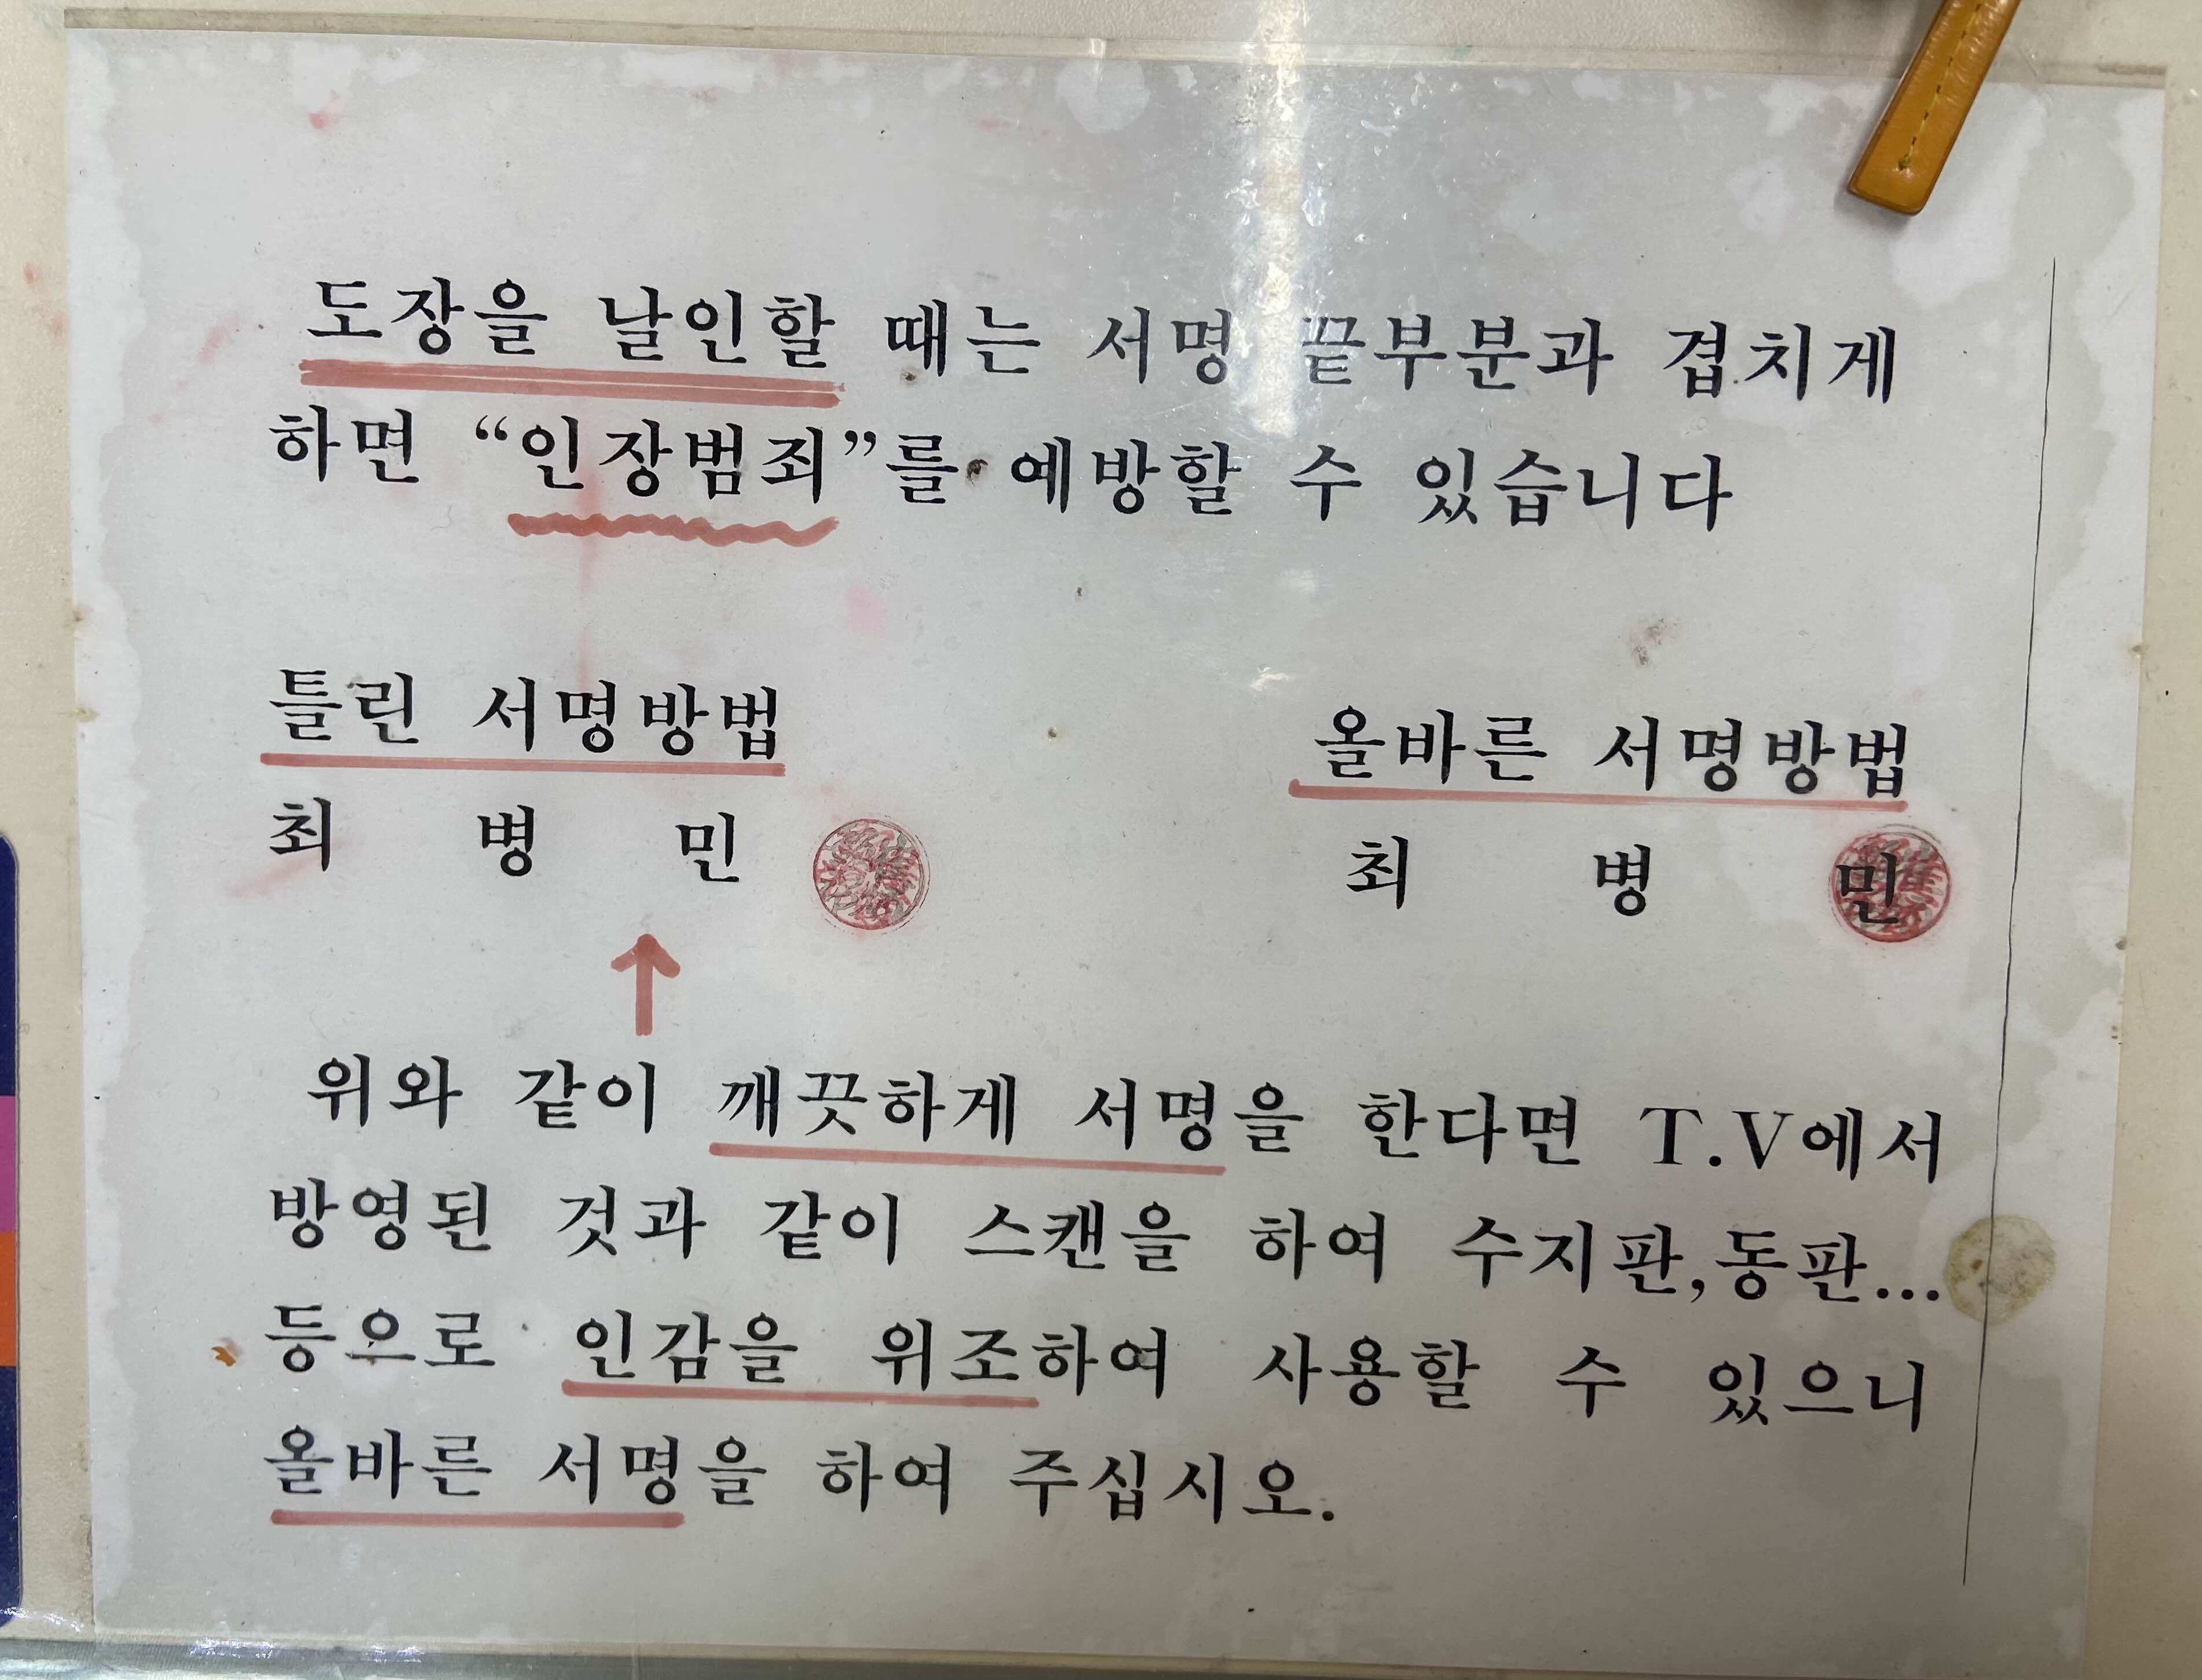 도장을 날인할 때는 서명 끝부분과 겹치게
하면 “인장범죄”를 예방할 수 있습니다
틀린 서명방법
올바른 서명방법
최 병 민
최 병 민
위와 같이 깨끗하게 서명을 한다면 T.V에서
방영된 것과 같이 스캔을 하여 수지판,동판...
등으로 인감을 위조하여 사용할 수 있으니
올바른 서명을 하여 주십시오.